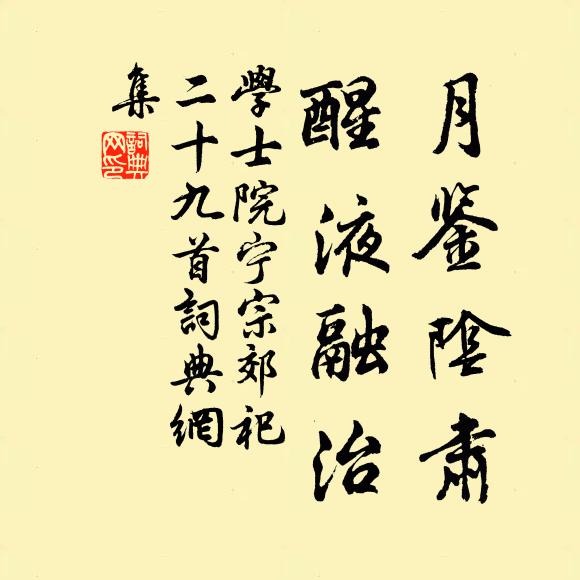 月鉴陰肅
醒液融治
學士院宁宗郊祀
二十九首詞典網
集
詞典
网印